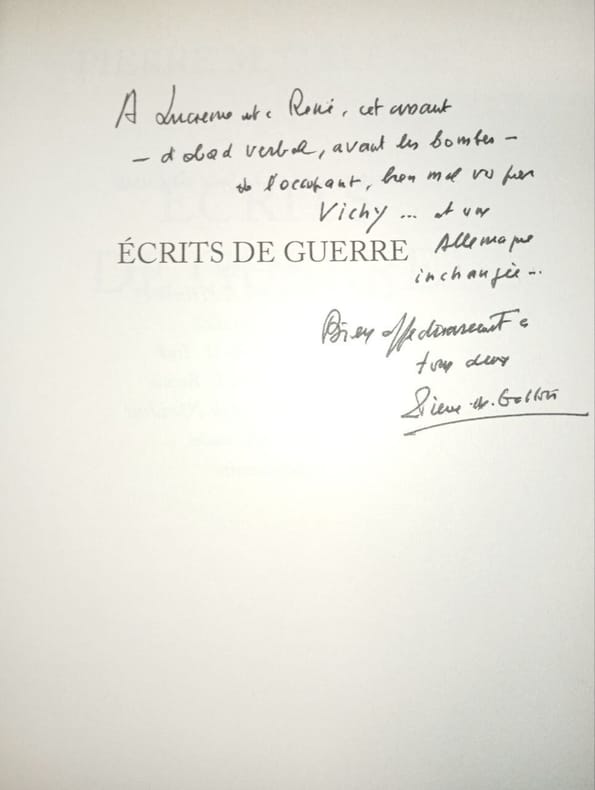 A Lucienne et à René, cet avant
– d'abord verbal, avant les bombes –
de l'occupant, bien mal vu par
Vichy ... et une
ÉCRITS DE GUERRE
Allemagne
inchangée ...
Bien affectueusement à
tous deux
Pierre M. Gallois